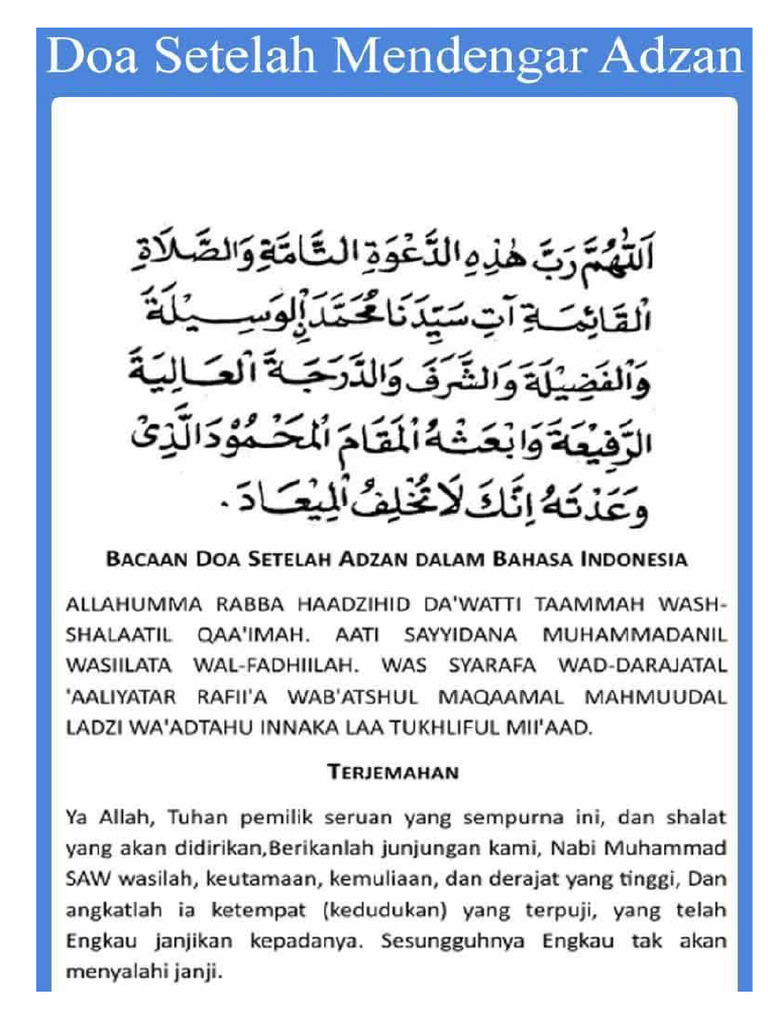 Doa Setelah Mendengar Adzan
اَللّٰهُمَّ رَبَّ هٰذِهِ الدَّعْوَةِ التَّامَّةِ وَالصَّلَاةِ
الْقَائِمَةِ آتِ سَيِّدَنَا مُحَمَّدَ اِلْوَسِيْلَةَ
وَالْفَضِيْلَةَ وَالشَّرَفَ وَالدَّرَجَةَ الْعَالِيَةَ
الرَّفِيْعَةَ وَابْعَثْهُ الْمَقَامَ الْمَحْمُوْدَ الَّذِىْ
وَعَدْتَهُ اِنَّكَ لَا تُخْلِفُ الْمِيْعَادَ .
BACAAN DOA SETELAH ADZAN DALAM BAHASA INDONESIA
ALLAHUMMA RABBA HAADZIHID DA'WATTI TAAMMAH WASH-
SHALAATIL QAA'IMAH. AATI SAYYIDANA MUHAMMADANIL
WASIILATA WAL-FADHIILAH. WAS SYARAFA WAD-DARAJATAL
'AALIYATAR RAFII'A WAB'ATSHUL MAQAAMAL MAHMUUDAL
LADZI WA'ADTAHU INNAKA LAA TUKHLIFUL MII'AAD.
TERJEMAHAN
Ya Allah, Tuhan pemilik seruan yang sempurna ini, dan shalat
yang akan didirikan,Berikanlah junjungan kami, Nabi Muhammad
SAW wasilah, keutamaan, kemuliaan, dan derajat yang tinggi, Dan
angkatlah ia ketempat (kedudukan) yang terpuji, yang telah
Engkau janjikan kepadanya. Sesungguhnya Engkau tak akan
menyalahi janji.